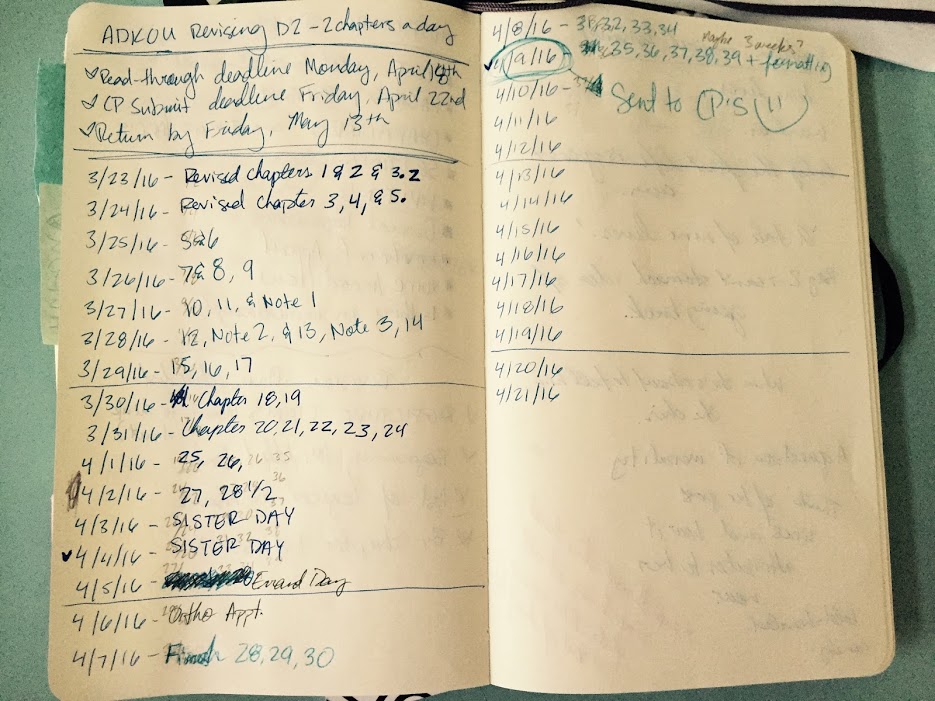 ADKOU Revising D2 - 2 chapters a day
✓ Read-through deadline Monday, April 18th
✓ CP Submit deadline Friday, April 22nd
✓ Return by Friday, May 13th
3/23/16 - Revised chapters 1 & 2 & 3.2
3/24/16 - Revised Chapter 3, 4, & 5.
3/25/16 - 5 & 6
3/26/16 - 7 & 8, 9
3/27/16 - 10, 11, & Note 1
3/28/16 - 12, Note 2, & 13, Note 3, 14
3/29/16 - 15, 16, 17
3/30/16 - Chapter 18, 19
3/31/16 - Chapter 20, 21, 22, 23, 24
4/1/16 - 25, 26,
4/2/16 - 27, 28 1/2
4/3/16 - SISTER DAY
✓ 4/4/16 - SISTER DAY
4/5/16 - Errand Day
4/6/16 - Ortho Appt.
4/7/16 - 28, 29, 30
4/8/16 - 31, 32, 33, 34
Maybe 3 weeks?
✓ 4/9/16 - 35, 36, 37, 38, 39 + formatting
4/10/16 - Sent to CP'S !!
4/11/16
4/12/16
4/13/16
4/14/16
4/15/16
4/16/16
4/17/16
4/18/16
4/19/16
4/20/16
4/21/16